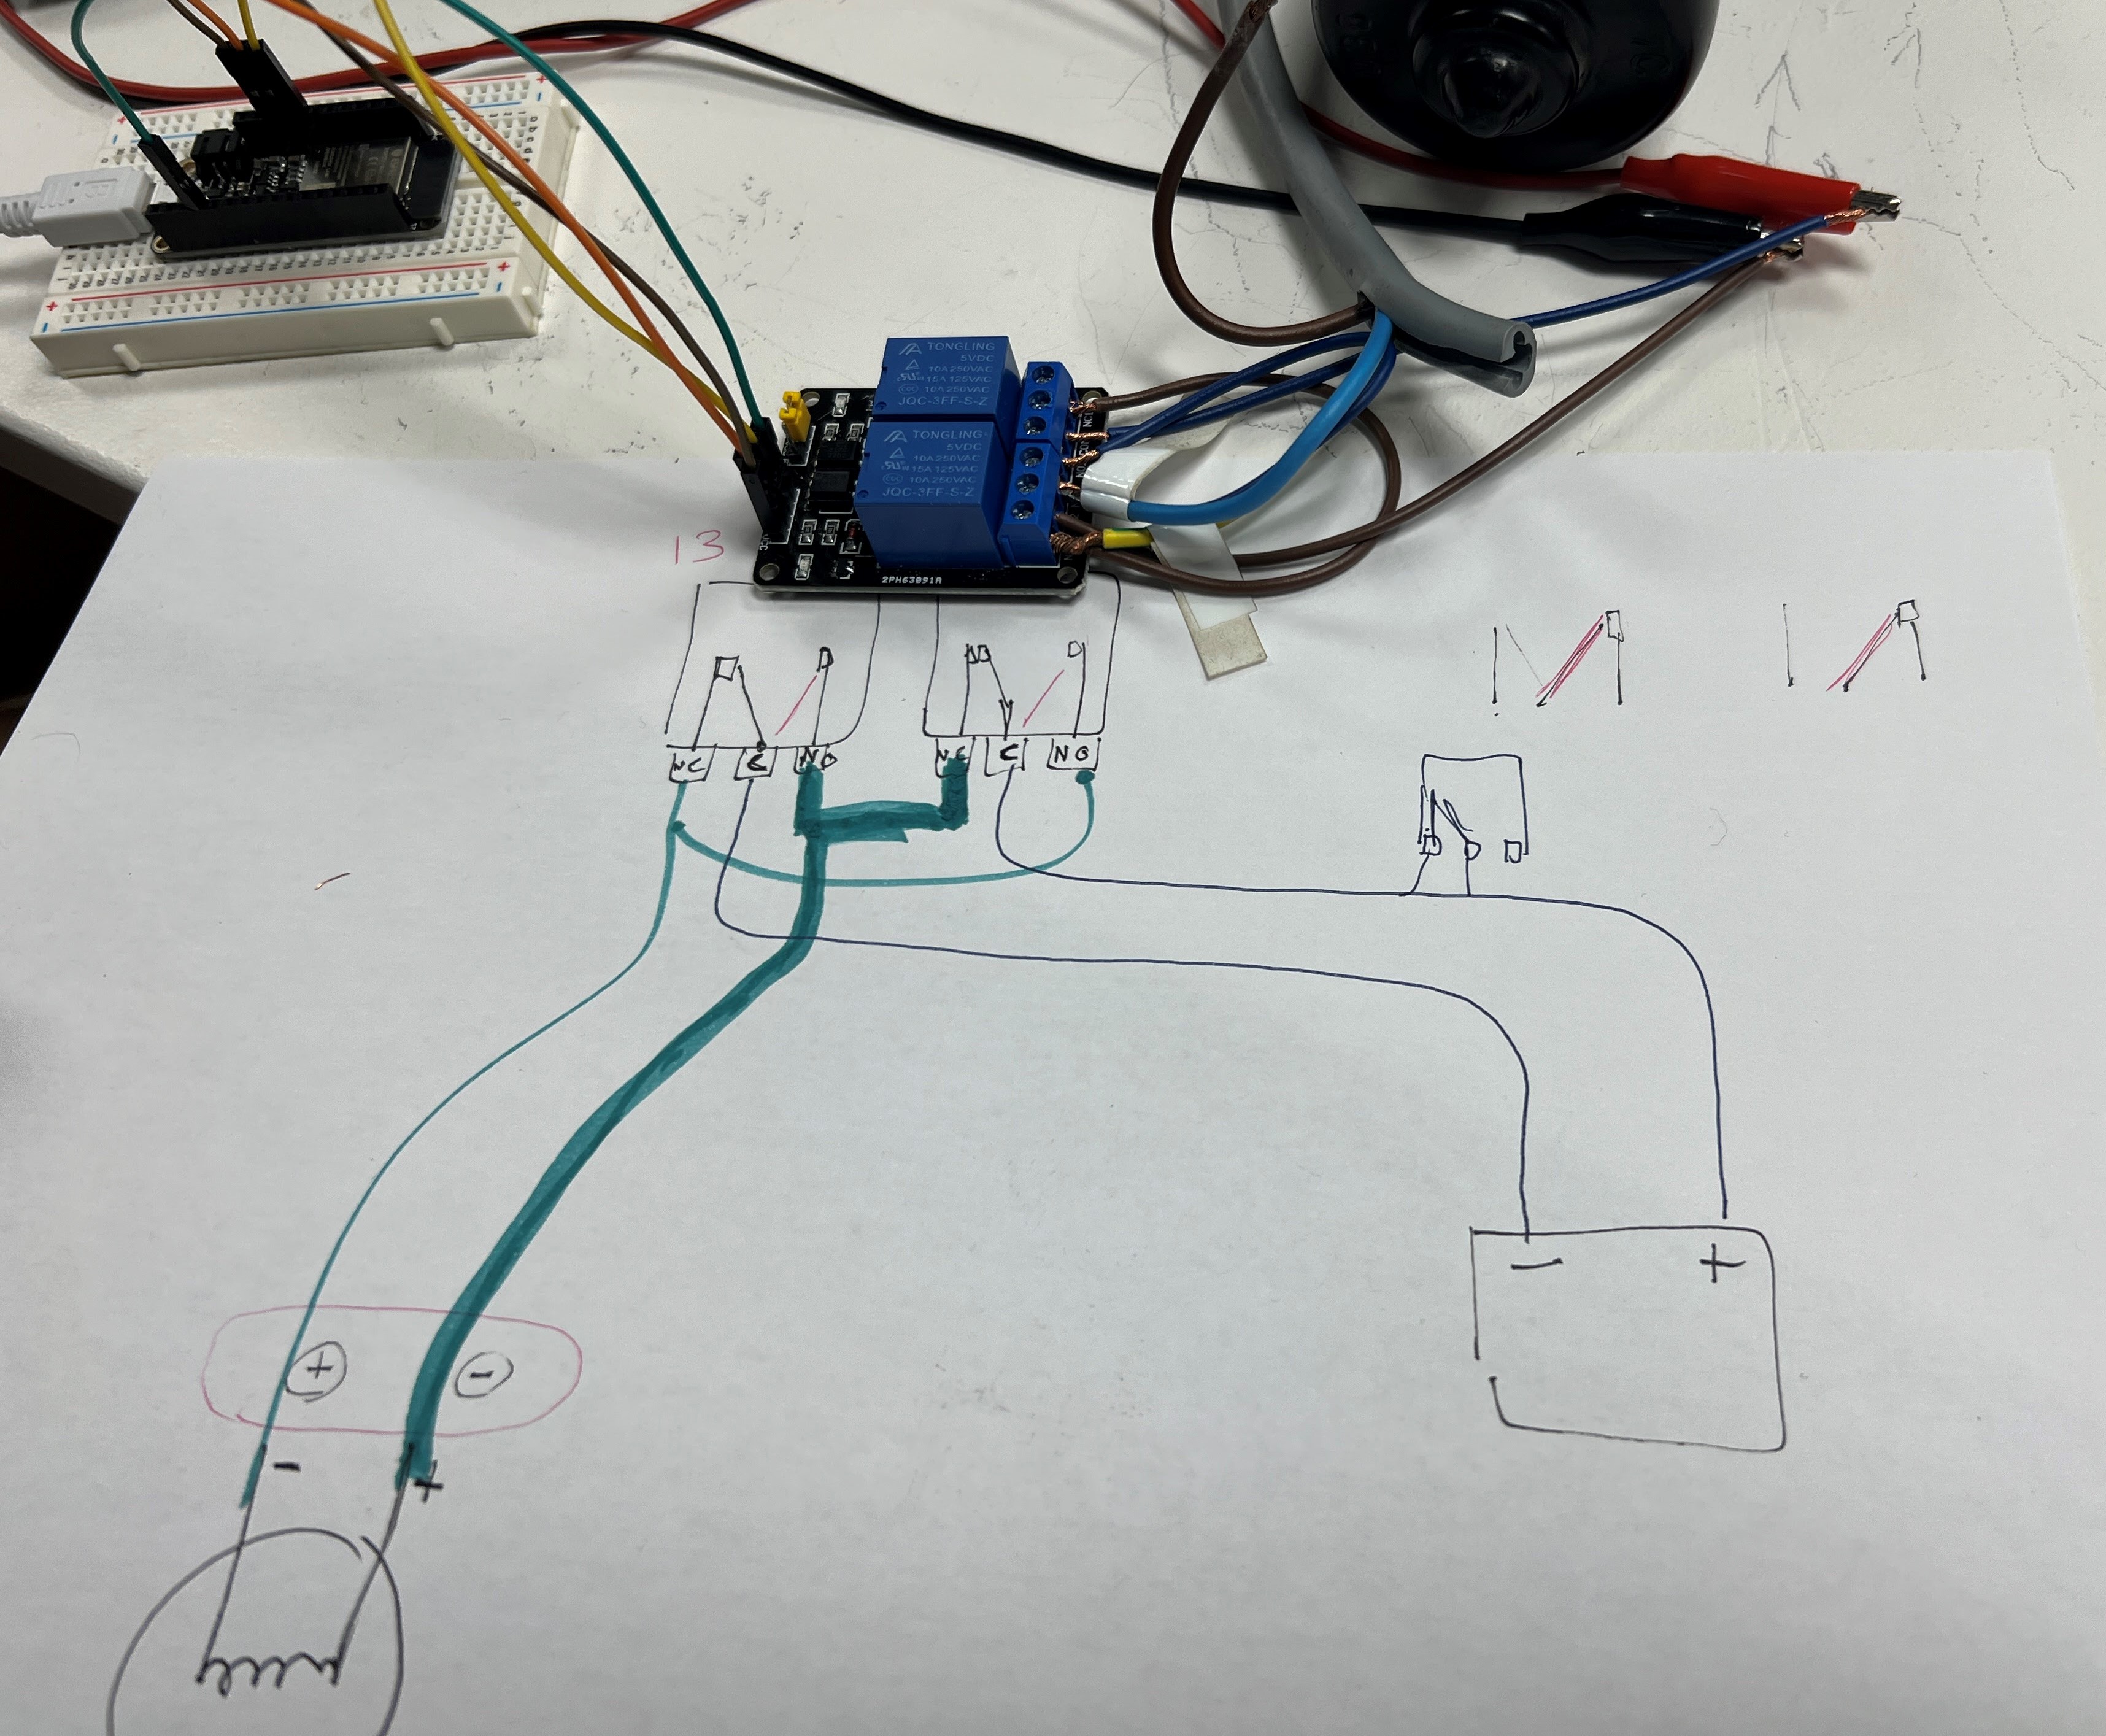 TONGLING
5VDC
10A 250VAC
15A 125VAC
10A 250VAC
JQC-3FF-S-Z
TONGLING
5VDC
10A 250VAC
15A 125VAC
10A 250VAC
JQC-3FF-S-Z
NC1
VCC
2PH63091A
13
NC C NO NC C NO
- +
+ -
- +